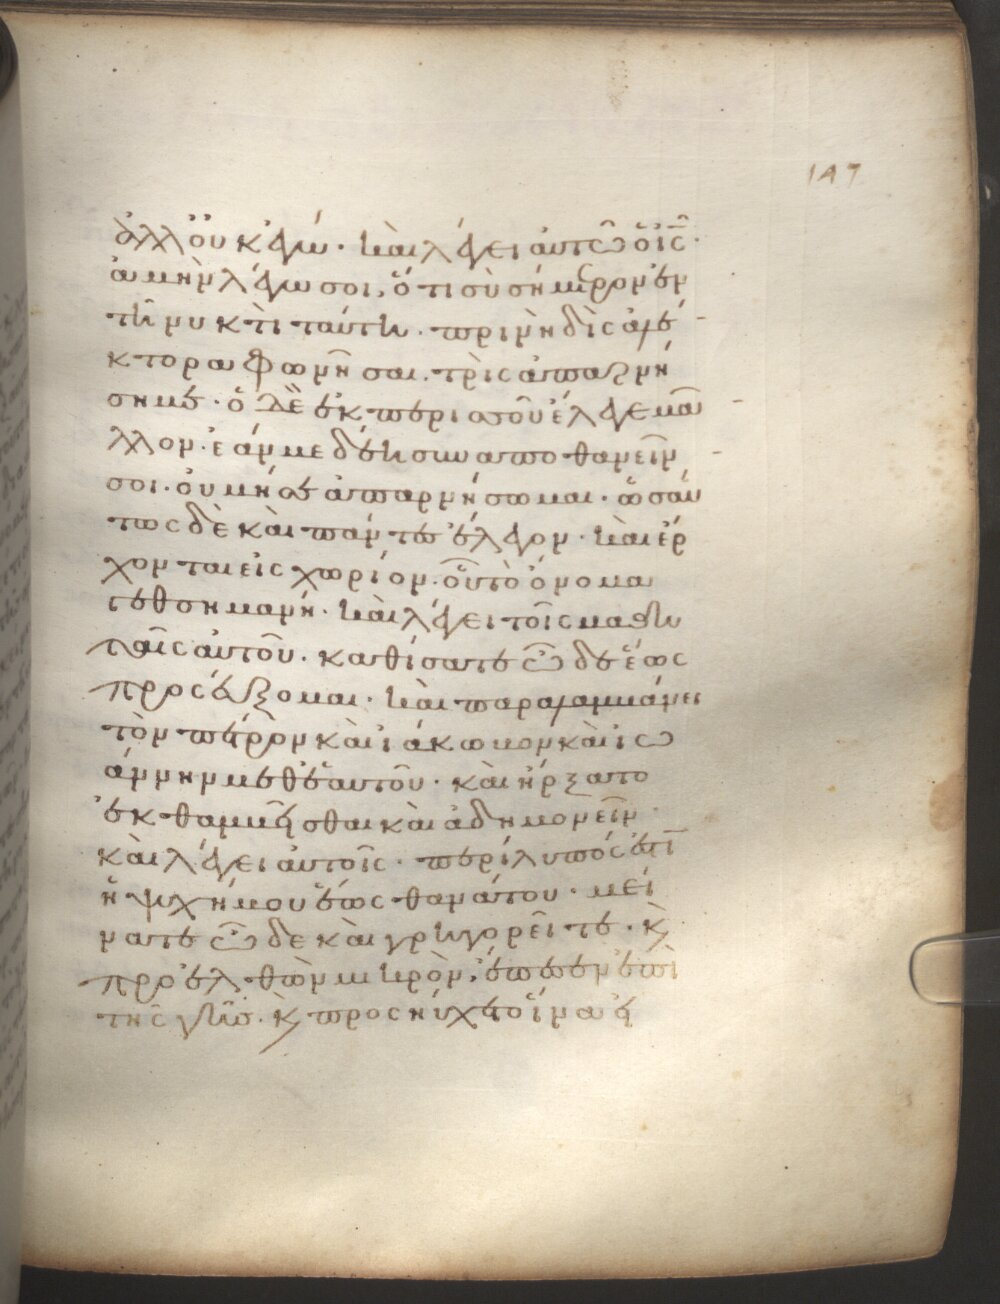 147
ἀλλ' οὐκ ἐγώ · καὶ λέγει αὐτῷ ὁ ἰ̅ς̅ ·
ἀμὴν λέγω σοι, ὅτι σὺ σήμερον ἐν
τῆ νυκτὶ ταύτη · πρὶν ἢ δὶς ἀλέ
κτορα φωνῆσαι · τρὶς ἀπαρνή
ση με · ὁ δὲ ἐκ περισσοῦ ἔλεγε μᾶ
λλον · ἐάν με δέη συναποθανεῖν
σοι · οὐ μή σε ἀπαρνήσωμαι · ὡσαύ
τως δὲ καὶ πάντες ἔλεγον · καὶ ἔρ
χονται εἰς χωρίον · οὗ τὸ ὄνομα
γεθσημανή · καὶ λέγει τοῖς μαθη
ταῖς αὐτοῦ · καθίσατε ὧδε ἕως
προσεύξομαι · καὶ παραλαμβάνει
τὸν πέτρον καὶ ἰάκωβον καὶ ἰω
άννην μεθ' ἑαυτοῦ · καὶ ἤρξατο
ἐκθαμβεῖσθαι καὶ ἀδημονεῖν ·
καὶ λέγει αὐτοῖς · περίλυπός ἐστῖ
ἡ ψυχή μου ἕως θανάτου · μεί
νατε ὧδε καὶ γρηγορεῖτε · κ̀
προελθὼν μικρὸν, ἔπεσεν ἐπὶ
τῆς γῆς · κ̀ προσηύχετο ἵνα εἰ